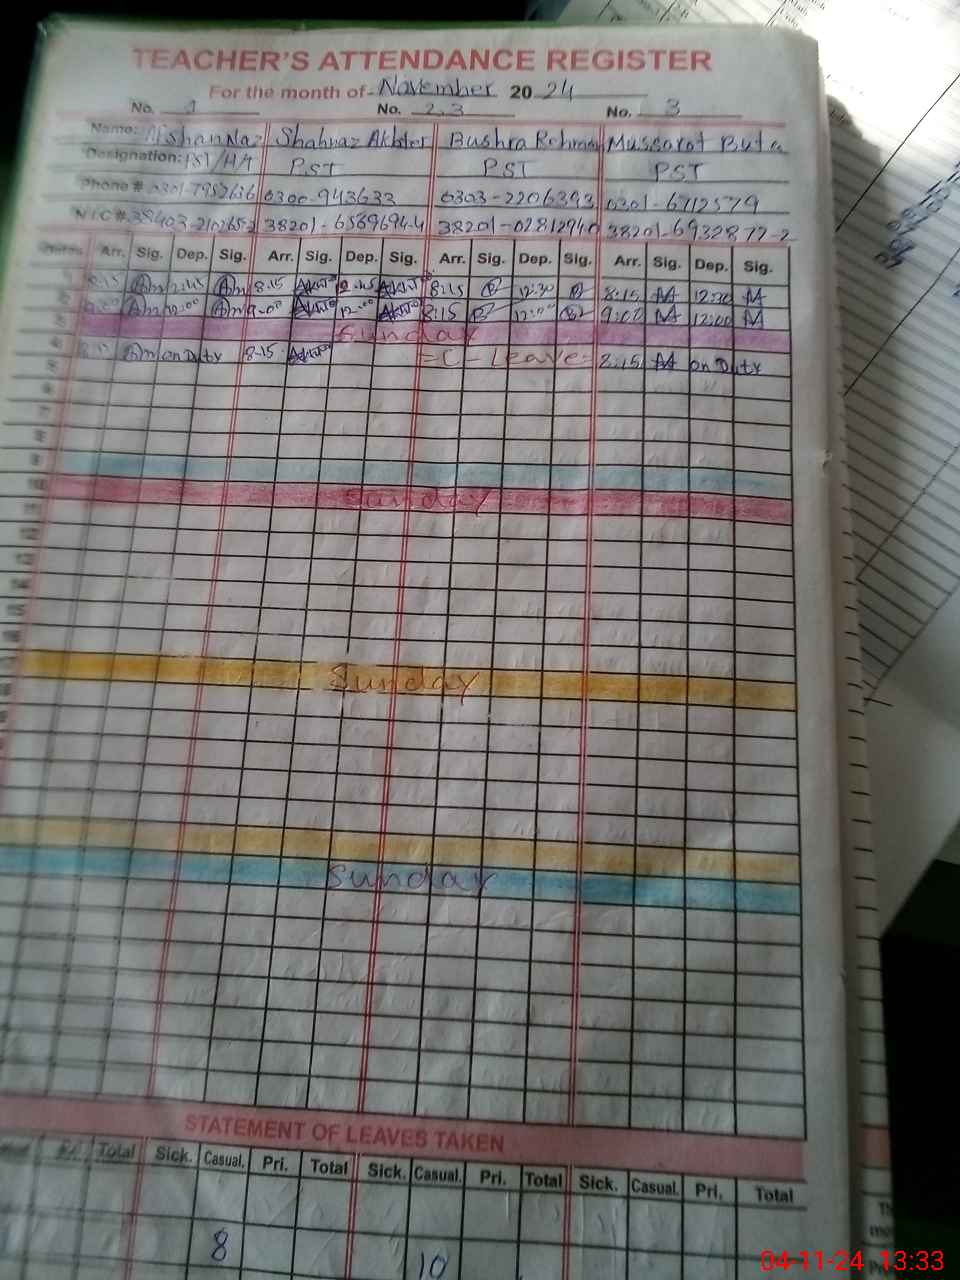 TEACHER'S ATTENDANCE REGISTER
For the month of November 2024
No. 1 No. 2,3 No. 3
Name: Afshan Naz Shahnaz Akhter Bushra Rehman Mussarat Buta
Designation: PST PST PST
Phone # 0301-7952636 0300-943633 0303-2206393 0301-6712579
N.I.C #. 38403-2102652 38201-6589694-4 38201-0281294-0 38201-6932877-2
Dates Arr. Sig. Dep. Sig. Arr. Sig. Dep. Sig. Arr. Sig. Dep. Sig. Arr. Sig. Dep. Sig.
1 8:15 12:45 8:15 12:45 8:15 12:30 8:15 12:30
2 9:00 12:00 9:00 12:00 8:15 12:00 9:00 12:00
3 Sunday
4 on Duty 8-15 =C-Leave= 8:15 on Duty
5
6
7
8
9
10 Sunday
11
12
13
14
15
16
17 Sunday
Sunday
STATEMENT OF LEAVES TAKEN
Total Sick. Casual. Pri. Total Sick. Casual. Pri. Total Sick. Casual. Pri. Total
8 10
04-11-24 13:33